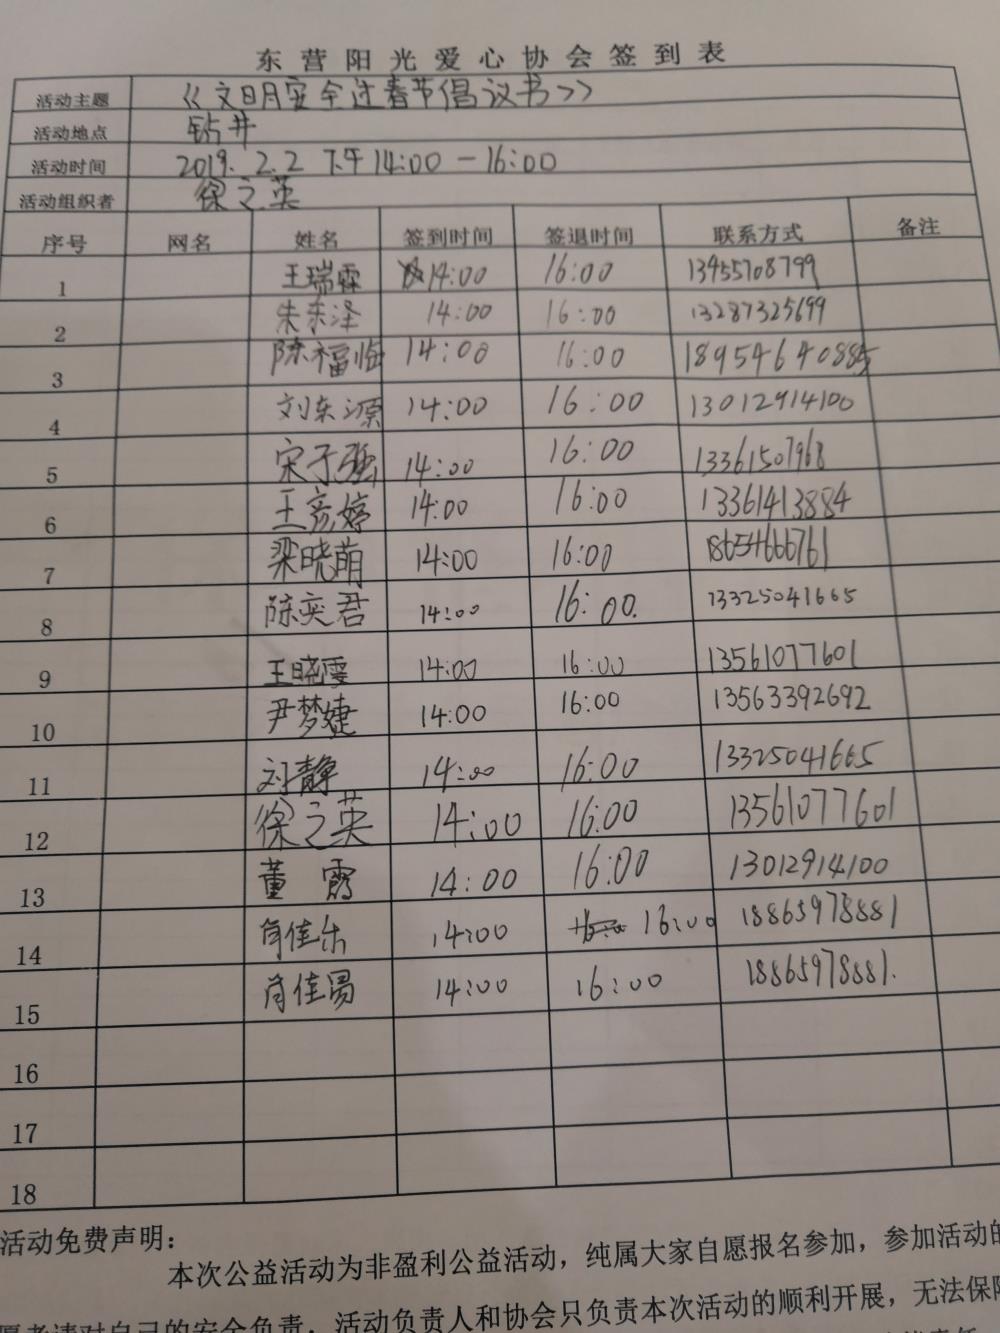 东营阳光爱心协会签到表
活动主题 《文明安全过春节倡议书>>
活动地点 钻井
活动时间 2019.2.2 下午14:00-16:00
活动组织者 徐之英
序号 网名 姓名 签到时间 签退时间 联系方式 备注
1 王瑞霖 14:00 16:00 13455708799
2 朱东泽 14:00 16:00 13287325699
3 陈福临 14:00 16:00 18954640885
4 刘东源 14:00 16:00 13012914100
5 宋子强 14:00 16:00 13361507968
6 王彦婷 14:00 16:00 13361413884
7 梁晓萌 14:00 16:00 18654666761
8 陈奕君 14:00 16:00. 13325041665
9 王晓雯 14:00 16:00 13561077601
10 尹梦婕 14:00 16:00 13563392692
11 刘静 14:00 16:00 13325041665
12 徐之英 14:00 16:00 13561077601
13 董霞 14:00 16:00 13012914100
14 肖佳乐 14:00 16:00 18865978881
15 肖佳易 14:00 16:00 18865978881.
16
17
18
活动免费声明：
本次公益活动为非盈利公益活动，纯属大家自愿报名参加，参加活动的
愿者请对自己的安全负责，活动负责人和协会只负责本次活动的顺利开展，无法保障